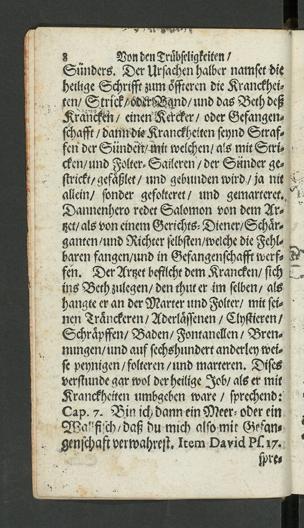 8 Von den Trübseligkeiten /
Sünders. Der Ursachen halber namset die
heilige Schrifft zum öffteren die Kranckhei-
ten / Strick / oder Band / und das Beth deß
Krancken / einen Kercker / oder Gefangen-
schafft / dann die Kranckheiten seynd Straf-
fen der Sünden / mit welchen / als mit Stri-
cken / und Folter-Saileren / der Sünder ge-
strickt / gefäßlet / und gebunden wird / ja nit
allein / sonder gefolteret / und gemarteret.
Dannenhero redet Salomon von dem Ar-
tzet / als von einem Gerichts-Diener / Schär-
ganten / und Richter selbsten / welche die Fehl-
baren fangen / und in Gefangenschafft werf-
fen. Der Artzet befilcht dem Krancken / sich
ins Beth zulegen / den thut er im selben / als
hangte er an der Marter und Folter / mit sei-
nen Tränckeren / Aderlässenen / Clystieren /
Schräpffen / Baden / Fontanellen / Bren-
nungen / und auf sechshundert anderley wei-
se peynigen / folteren / und marteren. Dises
verstunde gar wol der heilige Job / als er mit
Kranckheiten umbgeben ware / sprechend:
Cap. 7. Bin ich / dann ein Meer- oder ein
Wallfisch / daß du mich also mit Gefan-
genschaft verwahrest. Item David Ps. 17.
spre-